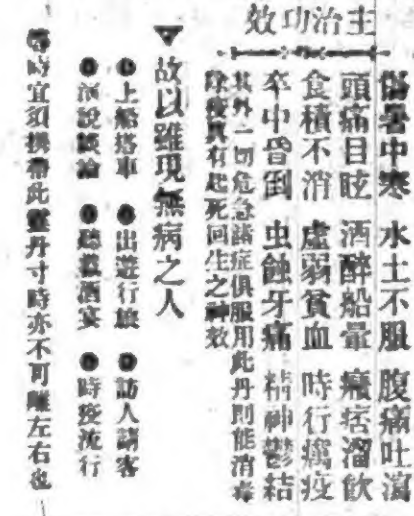 主治功效
傷暑中寒 水土不服 腹痛吐瀉
頭痛目眩 酒醉船暈 癪痞溜飲
食積不消 虛弱貧血 時行癘疫
卒中昏倒 虫蝕牙痛 精神鬱結
其外一切危急諸症俱服用此丹則能消毒
除疫真有起死回生之神效
▼故以雖現無病之人
●上船搭車 ●出遊行旅 ●訪人請客
●演說談論 ●聽戲酒宴 ●時疫流行
等時宜須携帶此靈丹寸時亦不可離左右也